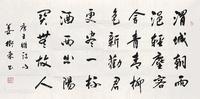 渭城朝雨
浥輕塵客
舍青青柳
色新勸君
更盡一杯
酒西出陽
關無故人
唐王維詩